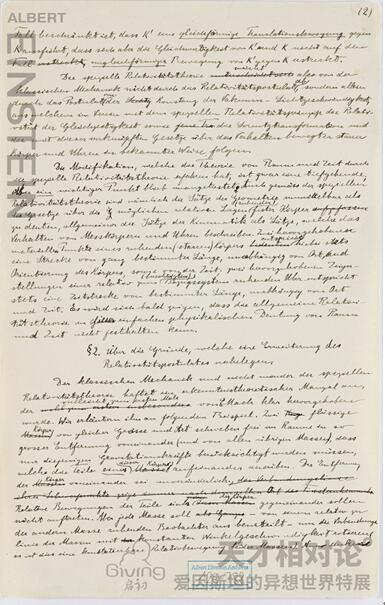 (2)
ALBERT
EINSTEIN
Fall beschränkt ist, dass K' eine gleichförmige Translationsbewegung gegen
K ausführt, dass sich aber die Gleichwertigkeit von K' und K nicht auf den
Fall ungleichförmiger Bewegung von K' gegen K erstreckt.
Die spezielle Relativitätstheorie weicht also von der
klassischen Mechanik nicht durch das Relativitätspostulat, sondern allein
durch das Postulat von der Konstanz der Vakuum-Lichtgeschwindigkeit,
aus welchem im Verein mit dem speziellen Relativitätsprinzip die Relati-
vität der Gleichzeitigkeit sowie die Lorentztransformation und
die mit dieser verknüpften Gesetze über das Verhalten bewegter starrer
Körper und Uhren in bekannter Weise folgen.
Die Modifikation, welche die Theorie von Raum und Zeit durch
die spezielle Relativitätstheorie erfahren hat, ist zwar eine tiefgehende,
aber ein wichtiger Punkt blieb unangetastet. Auch gemäss der speziellen
Relativitätstheorie sind nämlich die Sätze der Geometrie unmittelbar als
Gesetze über die möglichen relativen Lagen fester Körper
zu deuten, allgemeiner die Sätze der Kinematik als Sätze, welche das
Verhalten von Messkörpern und Uhren beschreiben. Zwei hervorgehobenen
materiellen Punkten eines ruhenden (starren) Körpers entspricht hiebei stets
eine Strecke von ganz bestimmter Länge, unabhängig von Ort und
Orientierung des Körpers, sowie von der Zeit; zwei hervorgehobenen Zeiger-
stellungen einer relativ zum (berechtigten) Bezugssystem ruhenden Uhr entspricht
stets eine Zeitstrecke von bestimmter Länge, unabhängig von Ort
und Zeit. Es wird sich bald zeigen, dass die allgemeine Relativi-
tätstheorie an dieser einfachen physikalischen Deutung von Raum
und Zeit nicht festhalten kann.
§2. Über die Gründe, welche eine Erweiterung des
Relativitätspostulates nahelegen.
Der klassischen Mechanik und nicht minder der speziellen
Relativitätstheorie haftet ein erkenntnistheoretischer Mangel an,
der vielleicht zum ersten Male von E. Mach klar hervorgehoben
wurde. Wir erläutern ihn an folgendem Beispiel. Zwei flüssige
Körper von gleicher Grösse und Art schweben frei im Raume in so
grosser Entfernung voneinander (und von allen übrigen Massen), dass
nur diejenigen Gravitationskräfte berücksichtigt werden müssen,
welche die Teile eines dieser Körper aufeinander ausüben. Die Entfernung
der Körper voneinander sei unveränderlich.
Relative Bewegungen der Teile eines der Körper gegeneinander sollen
nicht auftreten. Aber jede Masse soll von einem relativ zu
der anderen Masse ruhenden Beobachter aus beurteilt um die Verbindungs-
linie der Massen mit konstanter Winkelgeschwindigkeit rotieren
es ist dies eine konstatierbare Relativbewegung beider Massen.
Giving
启初
Albert Einstein Archives
天才相对论
爱因斯坦的异想世界特展